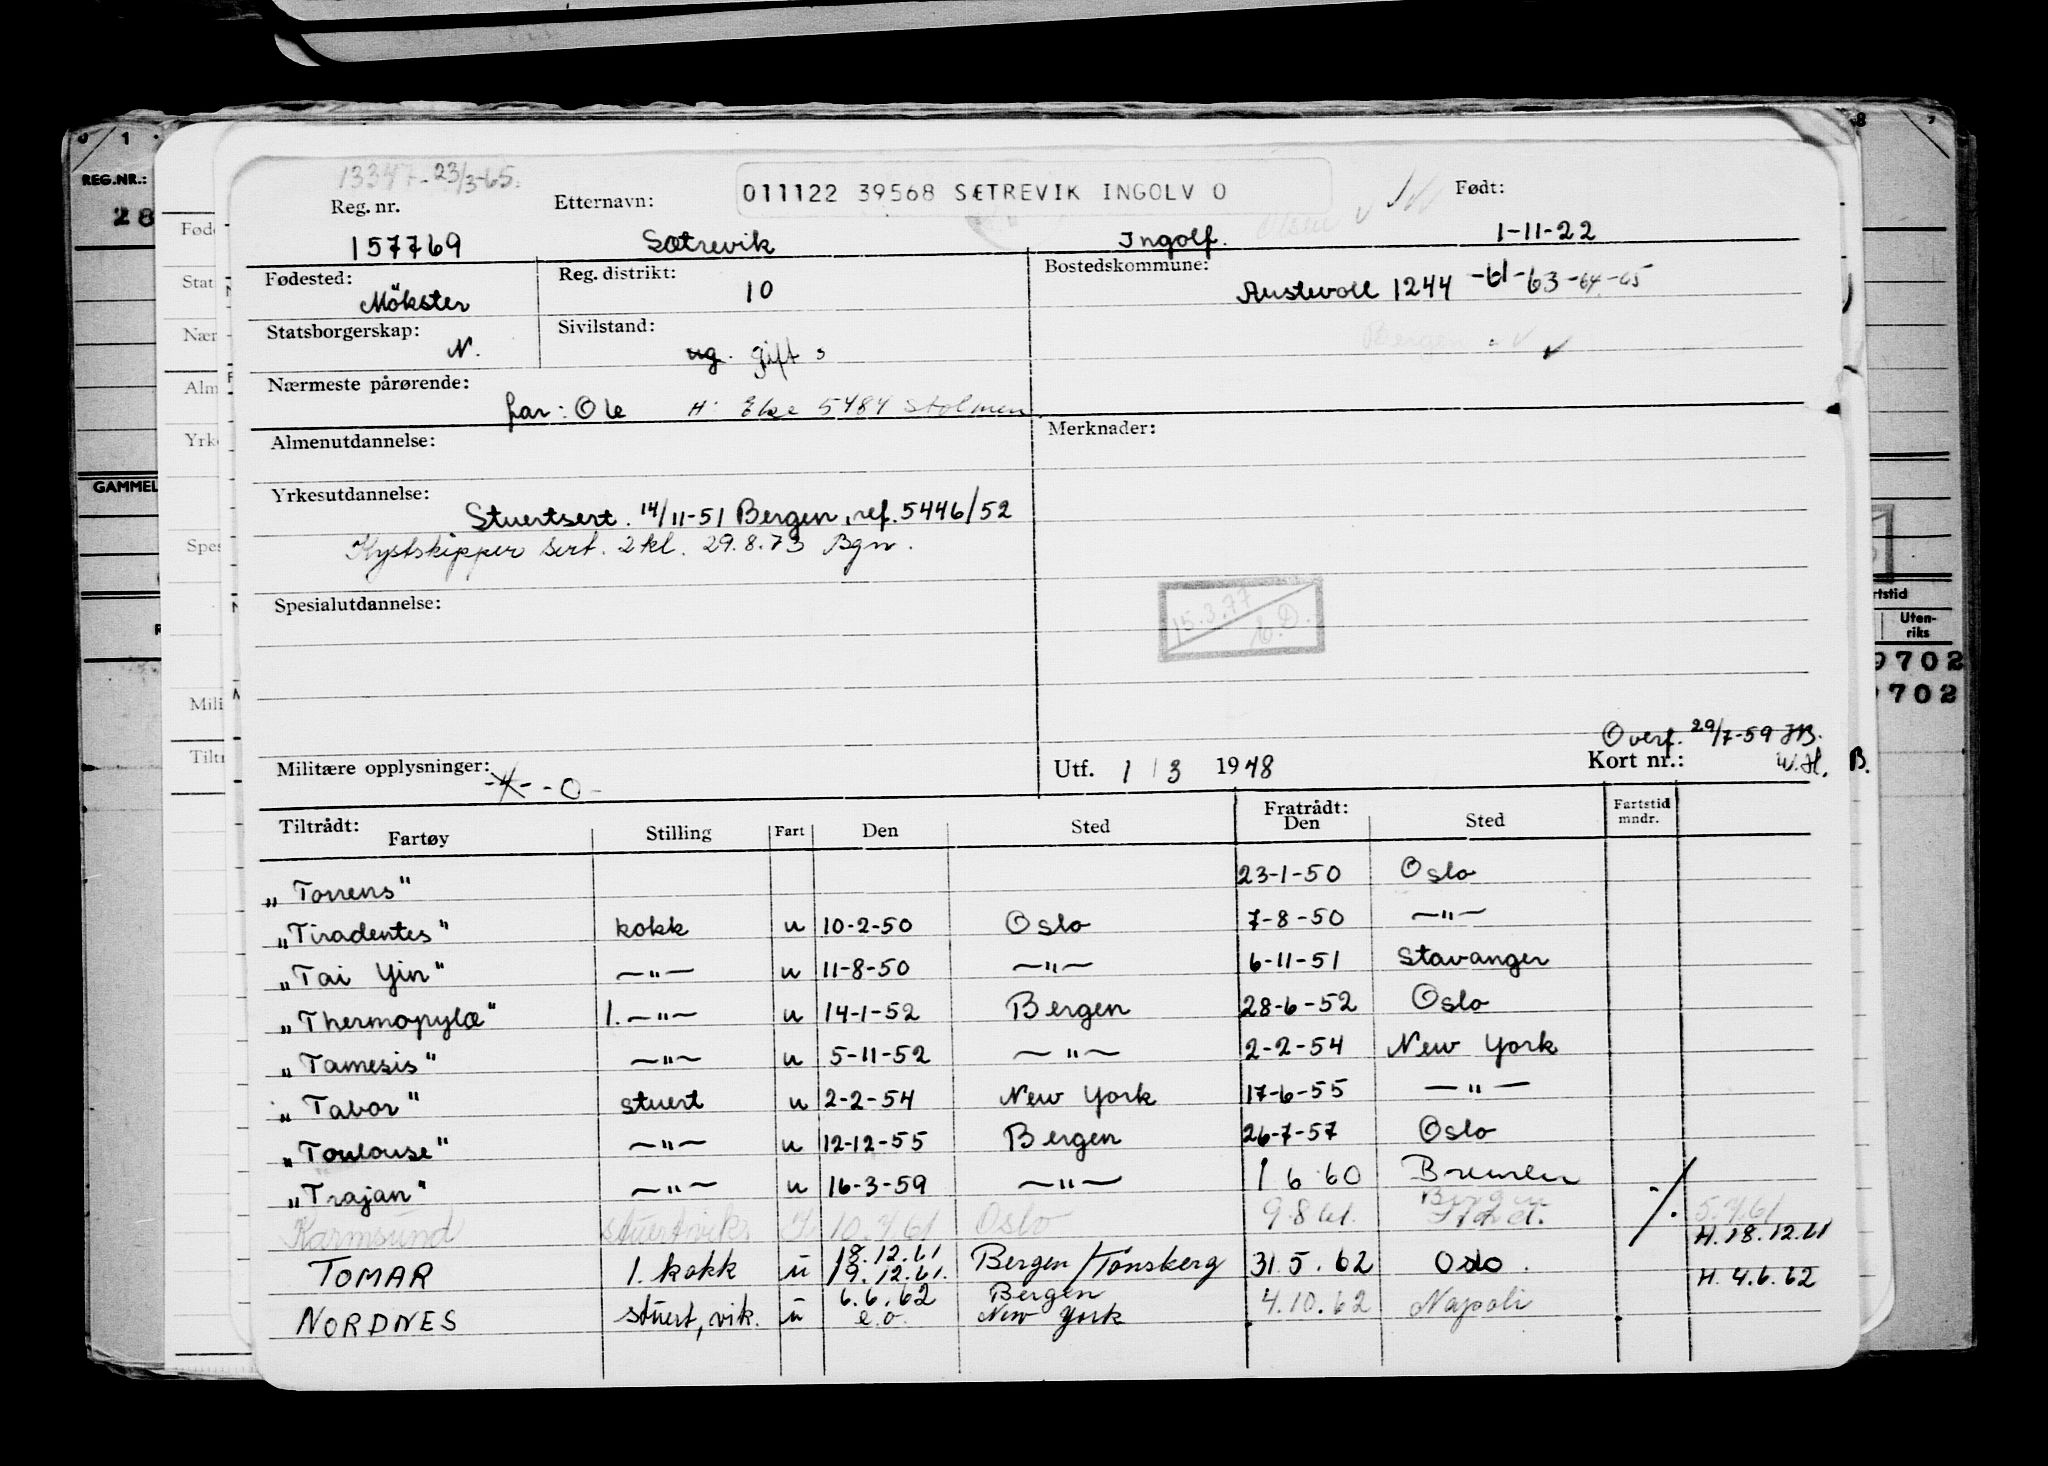 13347-23/3-65.
Reg. nr. Etternavn: 011122 39568 SÆTREVIK INGOLV O Født:
157769 Sætrevik Ingolf. Olsen 1-11-22
Fødested: Møkster Reg. distrikt: 10 Bostedskommune: Austevoll 1244 -61-63-64-65
Statsborgerskap: N. Sivilstand: ug. gift Bergen
Nærmeste pårørende: far: Ole H: Else 5484 Stolmen
Almenutdannelse: Merknader:
Yrkesutdannelse: Stuertsert. 14/11-51 Bergen, ref. 5446/52
Kystskipper sert. 2kl. 29.8.73 Bgn.
Spesialutdannelse: 15.3.77
Overf. 29/7-59 HB.
Militære opplysninger: -O- Utf. 1/3 1948 Kort nr.: W.H. B.
Tiltrådt: Fartøy Stilling Fart Den Sted Fratrådt: Den Sted Fartstid mndr.
"Torrens" 23-1-50 Oslo
"Tiradentes" kokk u 10-2-50 Oslo 7-8-50 —"—
"Tai Yin" —"— u 11-8-50 —"— 6-11-51 Stavanger
"Thermopylæ" 1. —"— u 14-1-52 Bergen 28-6-52 Oslo
"Tamesis" —"— u 5-11-52 —"— 2-2-54 New York
"Tabor" stuert u 2-2-54 New York 17-6-55 —"—
"Toulouse" —"— u 12-12-55 Bergen 26-7-57 Oslo
"Trajan" —"— u 16-3-59 —"— 1 6 60 Bremen
Karmsund stuert vik. 10.7.61 Oslo 9.8.61. Bergen 5.7.61
H. 18.12.61
TOMAR 1. kokk u 18.12.61 19.12.61. Bergen/Tønsberg 31.5.62 Oslo.
H. 4.6.62
NORDNES stuert, vik. u 6.6.62 e.o. Bergen New York 4.10.62 Napoli
REG.NR.:
28
GAMMEL
Uten-
riks
9702
9702